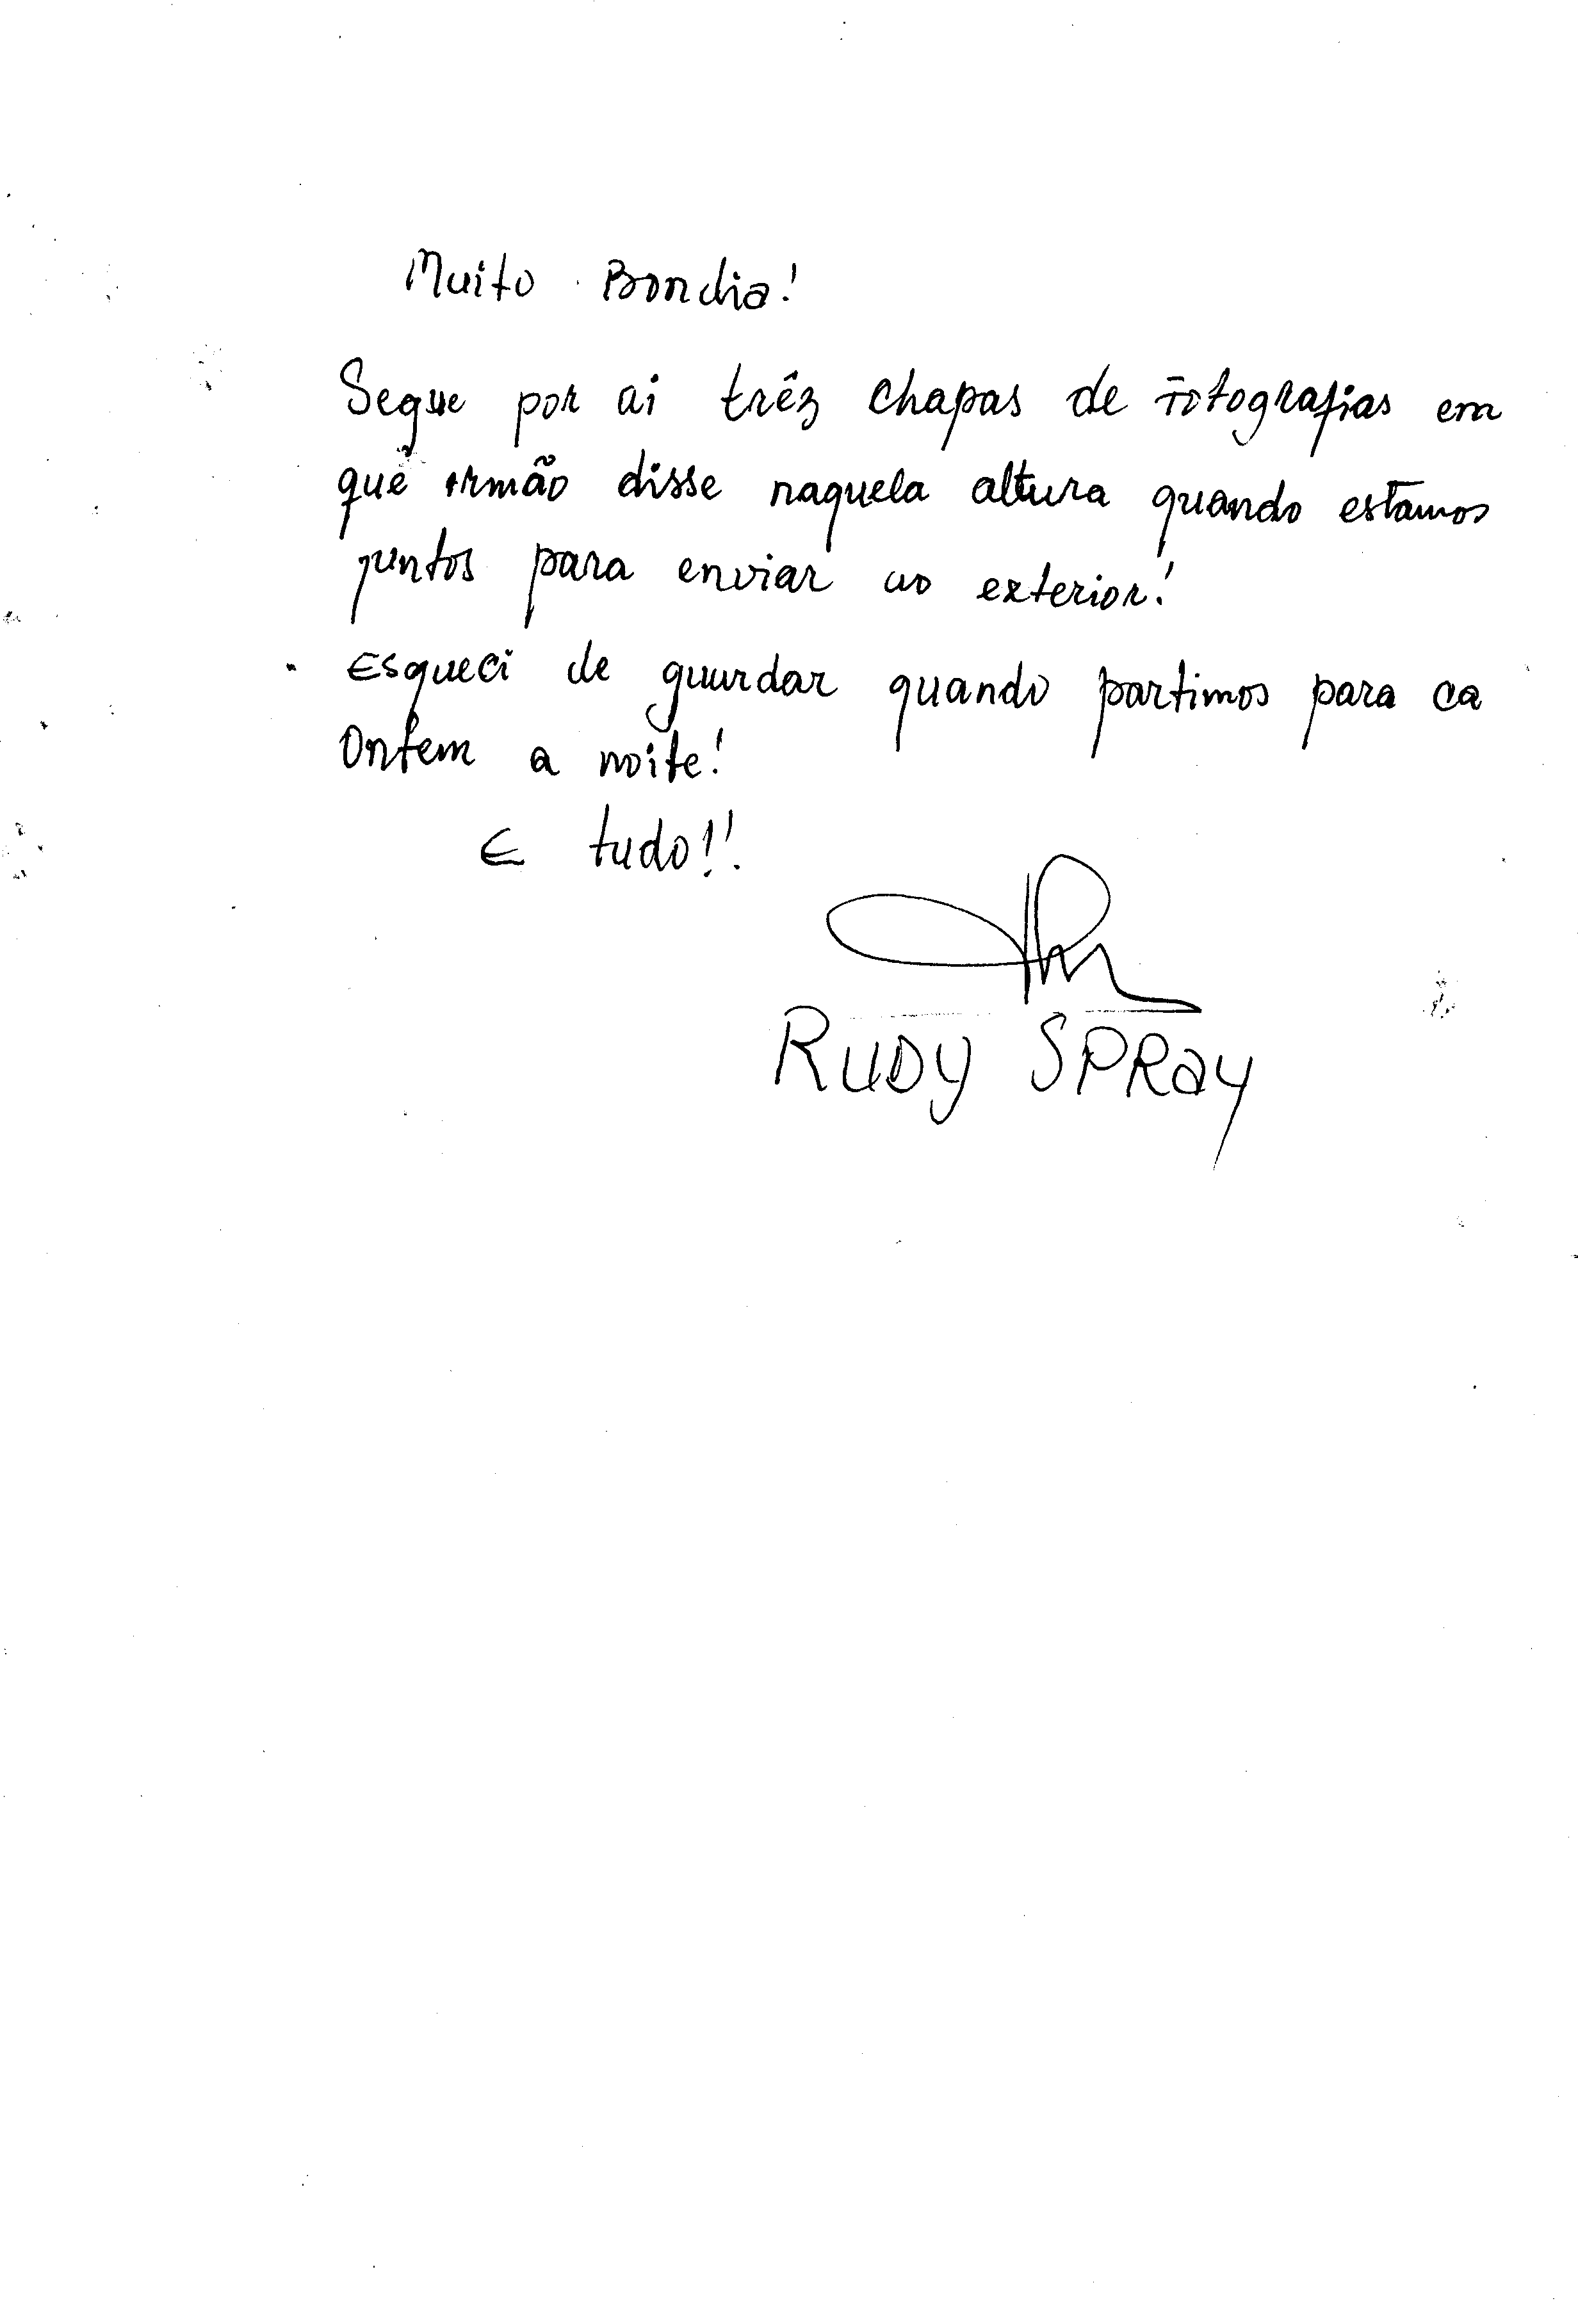 Muito Bondia!
Segue por ai três chapas de fotografias em
que irmão disse naquela altura quando estamos
juntos para enviar ao exterior!
Esqueci de guardar quando partimos para ca
Ontem a noite!
E tudo!!
RUDY SPRAY